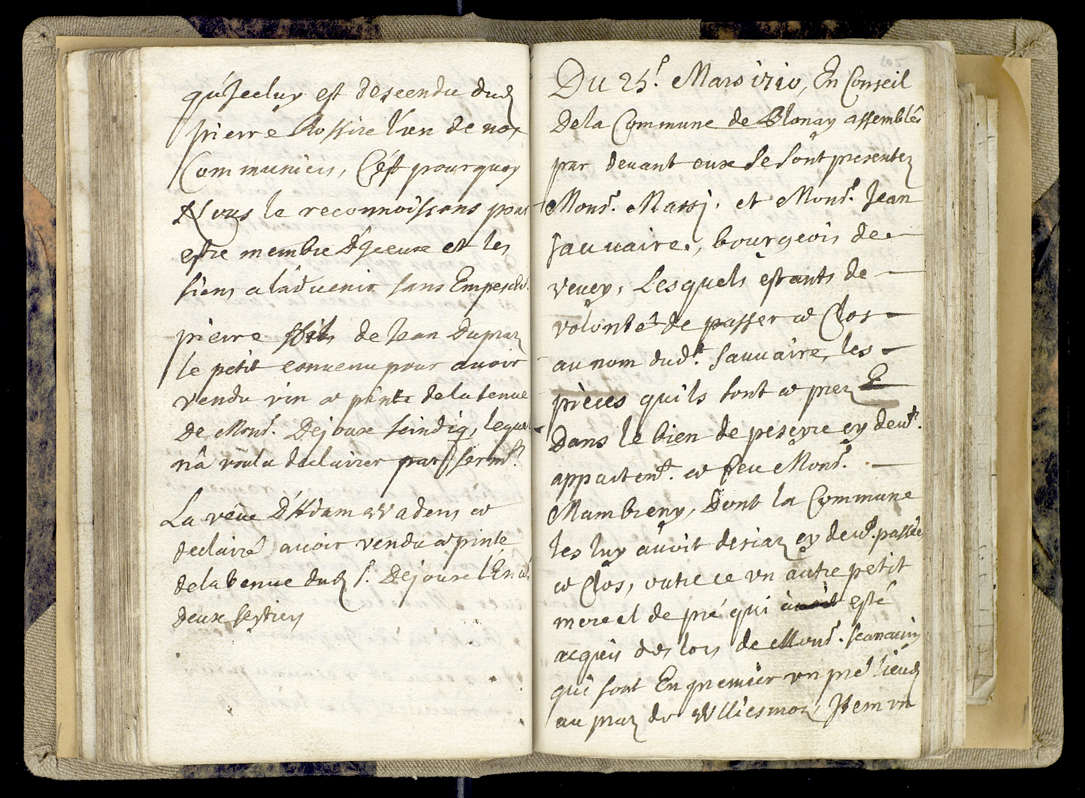 qu'Jceluy est descendu dud
pierre Rossire l'un de nos
Communiers, C'est pourquoy
Nous le reconnoissons pour
estre membre d'Jceux et les
siens a l'advenir sans Empesch.
pierre de Jean Dupraz
le petit convenu pour avoir
vendu vin a pinte de la tenue
De Mons.r Dejoux seindig, lequel
n'a voulu declairer par serm.t
La veue D'Adam Wadens a
declairé avoir vendu a pinte
de la tenue dud S.r Dejoux
deux sestiers
Du 25.e Mars 1710, En Conseil
De la Commune de Blonay assemblés
par devant eux se sont presentez
Mons.r et Mons.r Jean
fauvaire, bourgeois de
vevey, Lesquels estants de
volonté de passer a Clos
au nom dud.t fauvaire, les
pièces qu'ils sont a prez
Dans le bien de ey dev.t
apparten.t a feu Mons.r
Mambreny, Dont la Commune
les luy avoit desiaz ey dev.t passée
a Clos, outre ce un autre petit
morcel de pré qui avoit esté
acquis des lors de Mons.r
qui sont En premier un pré lieud
au praz de Williesmoz, Jtem un